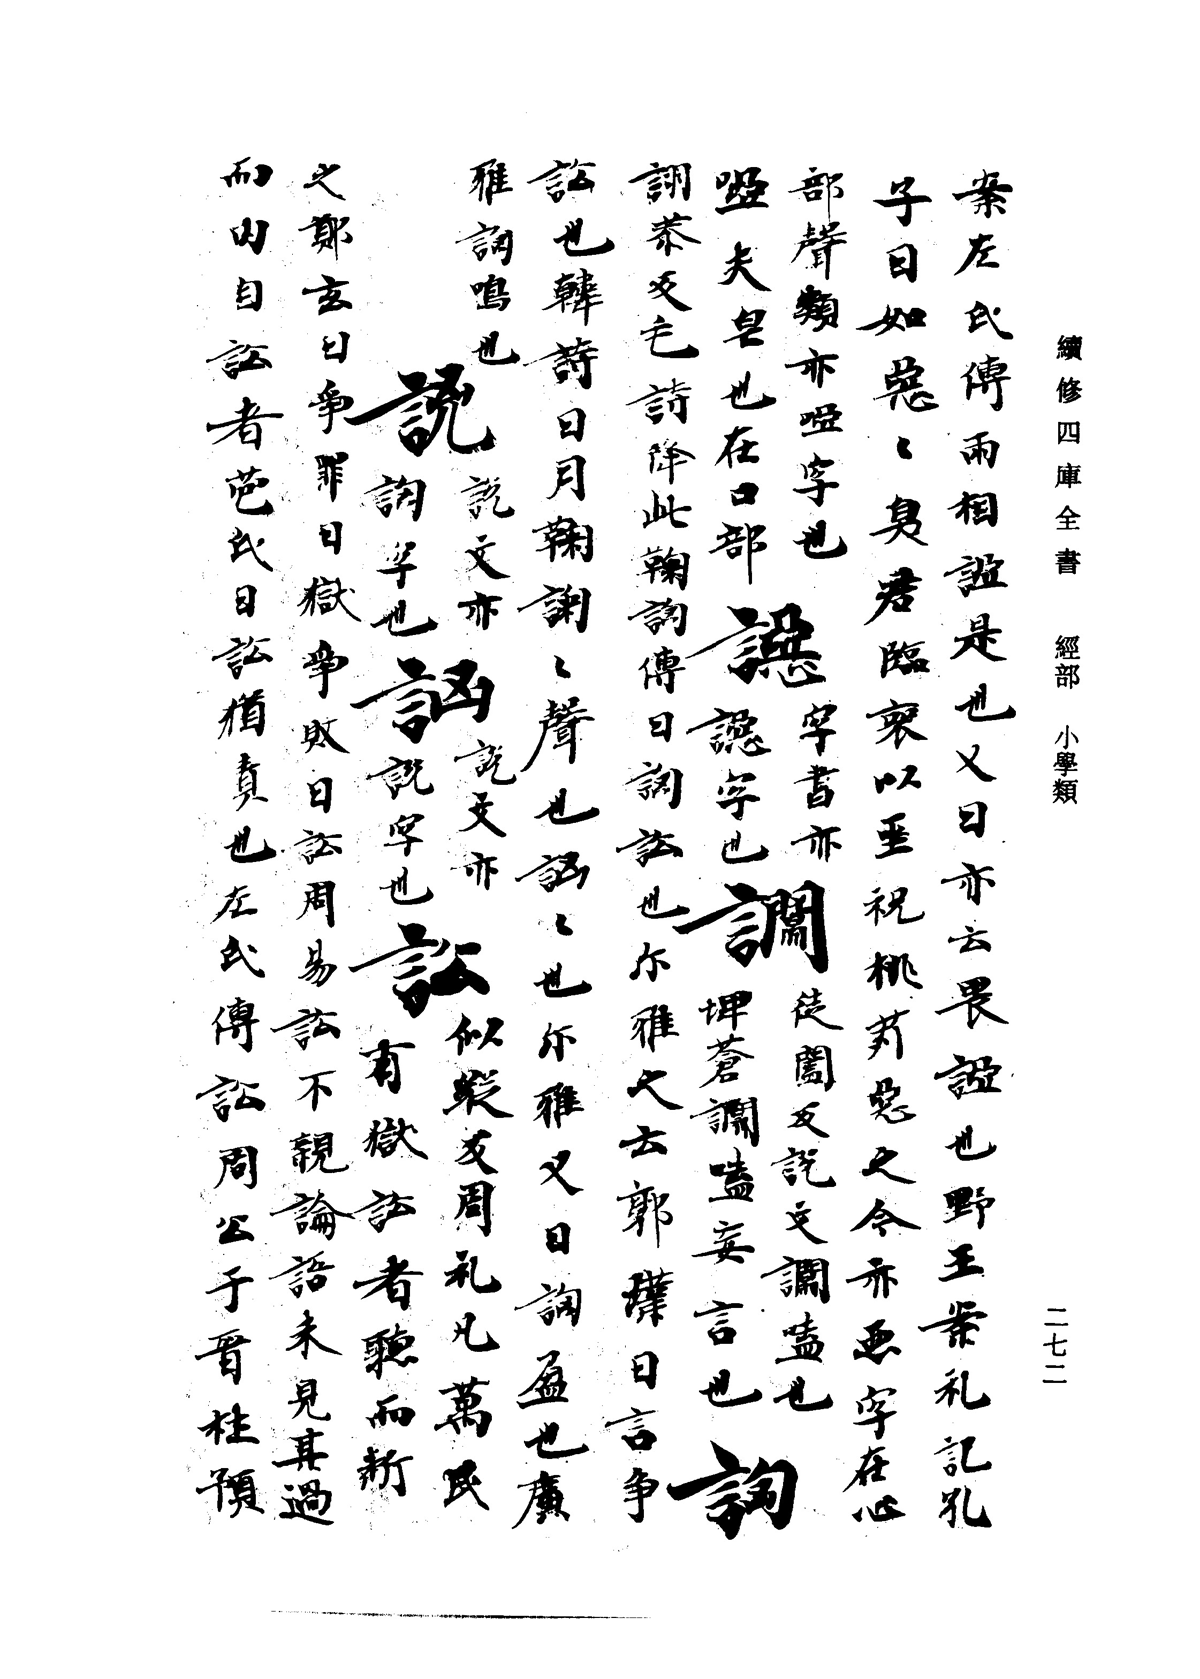 續修四庫全書 經部 小學類
二七二
案左氏傳兩相䛩是也又曰亦云畏䛩也野王案礼記孔
子曰如惡〻臭君臨衆以巫祝桃茢惡之今亦爲惡字在心
部聲類亦啞字也
啞夫皃也在口部 諲 字書亦諲字也 讕 徒闔反說文讕嗑也埤蒼讕嗑妄言也 訩
詡恭反毛詩降此鞠訩傳曰訩訟也尓雅之云郭璞曰言爭
訟也韓詩曰日月鞠訩〻聲也詾〻也尓雅又曰訩盈也廣
雅訩鳴也
說 說文亦訩字也 詾 說文亦訩字也 訟 似縱反周礼凡萬民有獄訟者聽而斷
之鄭玄曰爭罪曰獄爭敗曰訟周易訟不親論語未見其過
而內自訟者苞氏曰訟猶責也左氏傳訟周公于晉杜預